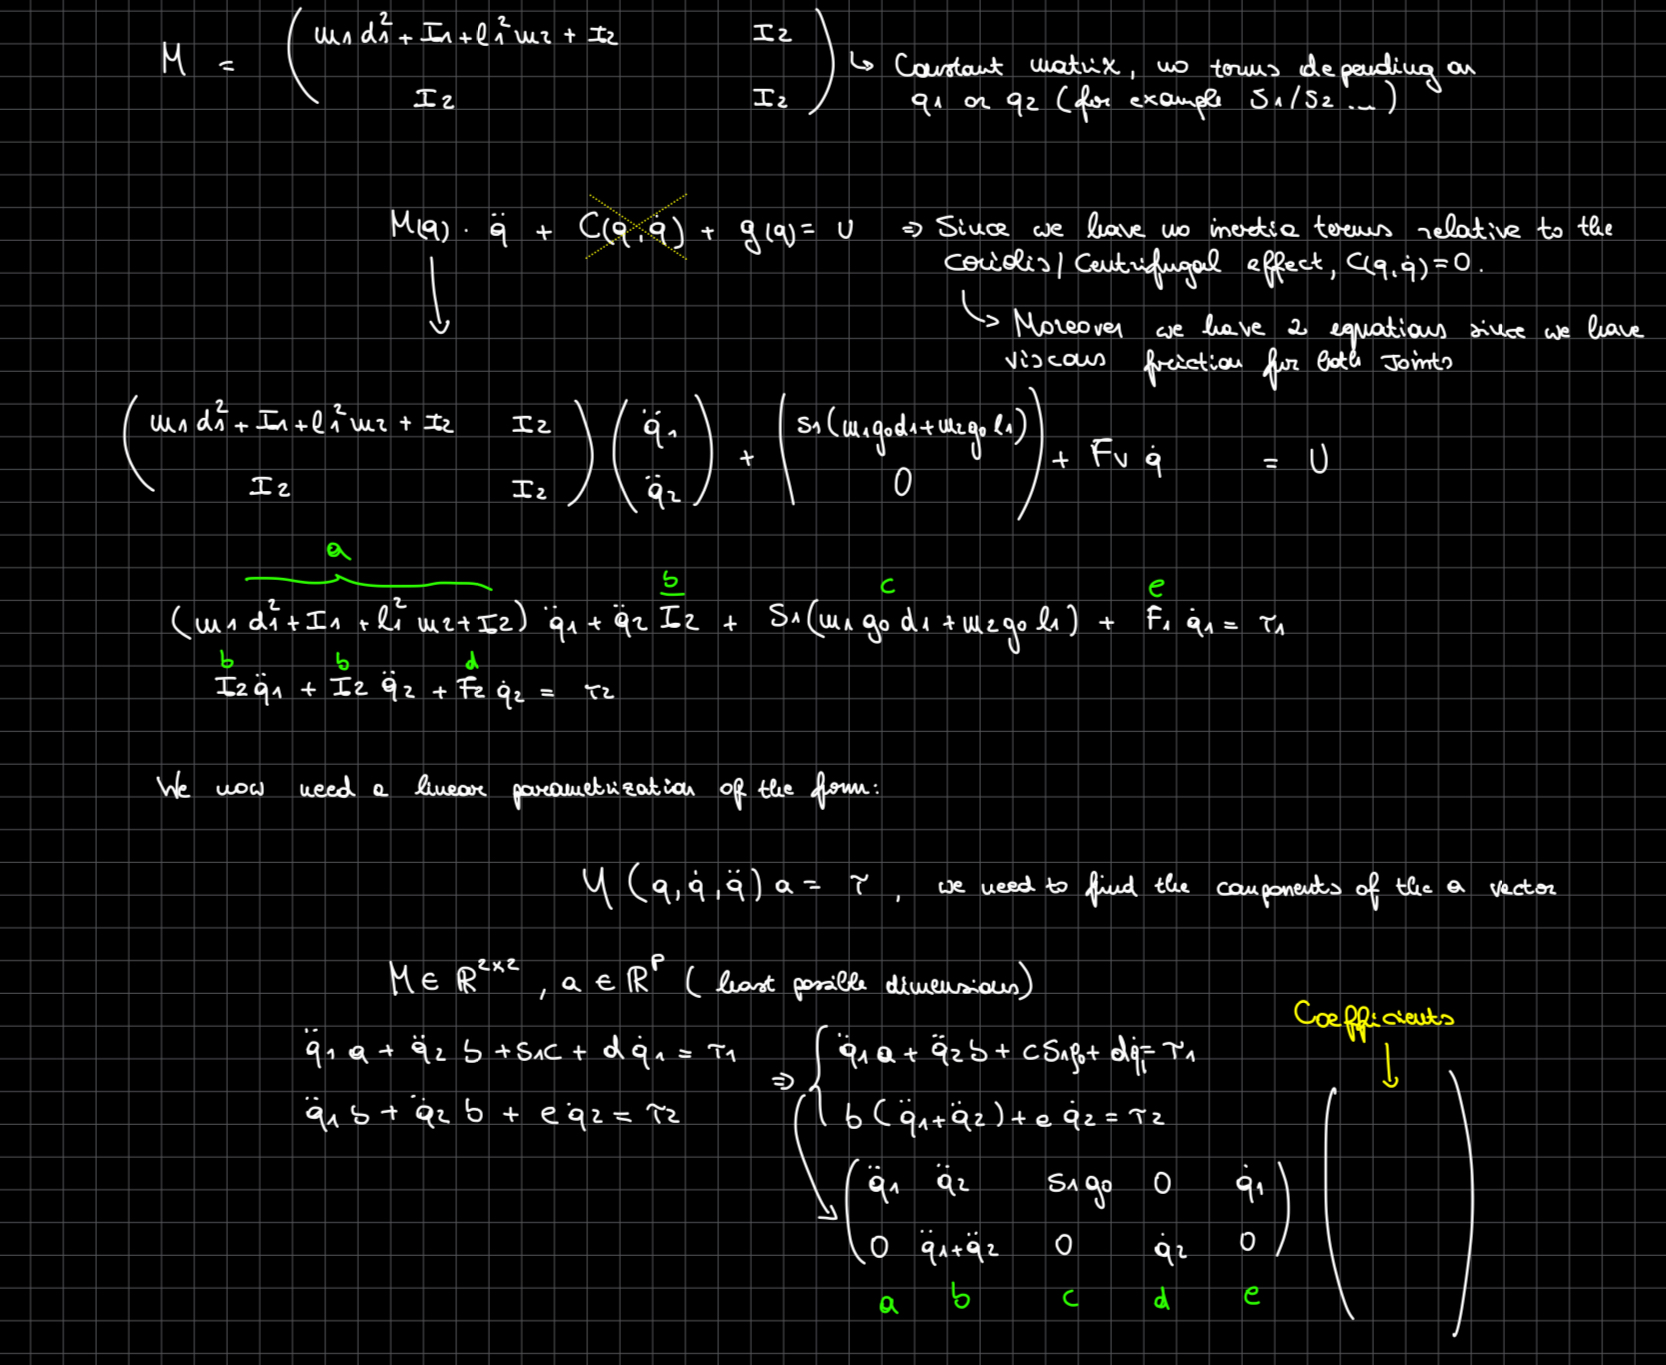 M = ( m1 d1² + I1 + l1² m2 + I2   I2
I2   I2 )
↳ Constant matrix, no terms depending on
q1 or q2 (for example S1/S2 ...)
M(q) · q̈ + C(q,q̇) + g(q) = U ⇒ Since we have no inertia terms relative to the
coriolis/Centrifugal effect, C(q,q̇)=0.
↳ Moreover we have 2 equations since we have
viscous friction for both Joints
( m1 d1² + I1 + l1² m2 + I2   I2 ) ( q̈1 ) + ( S1(m1 g0 d1 + m2 g0 l1) ) + Fv q̇ = U
( I2   I2 ) ( q̈2 ) ( 0 )
a b c e
(m1 d1² + I1 + l1² m2 + I2) q̈1 + q̈2 I2 + S1(m1 g0 d1 + m2 g0 l1) + F1 q̇1 = τ1
b b d
I2 q̈1 + I2 q̈2 + F2 q̇2 = τ2
We now need a linear parametrization of the form:
Y (q, q̇, q̈) a = τ , we need to find the components of the a vector
M ∈ ℝ^2×2 , a ∈ ℝ^P ( least possible dimensions)
Coefficients
q̈1 a + q̈2 b + S1 c + d q̇1 = τ1 ⇒ { q̈1 a + q̈2 b + c S1 g0 + d q̇1 = τ1
q̈1 b + q̈2 b + e q̇2 = τ2   b (q̈1 + q̈2) + e q̇2 = τ2
( q̈1 q̈2 S1 g0 0 q̇1 )
( 0 q̈1+q̈2 0 q̇2 0 )
a b c d e